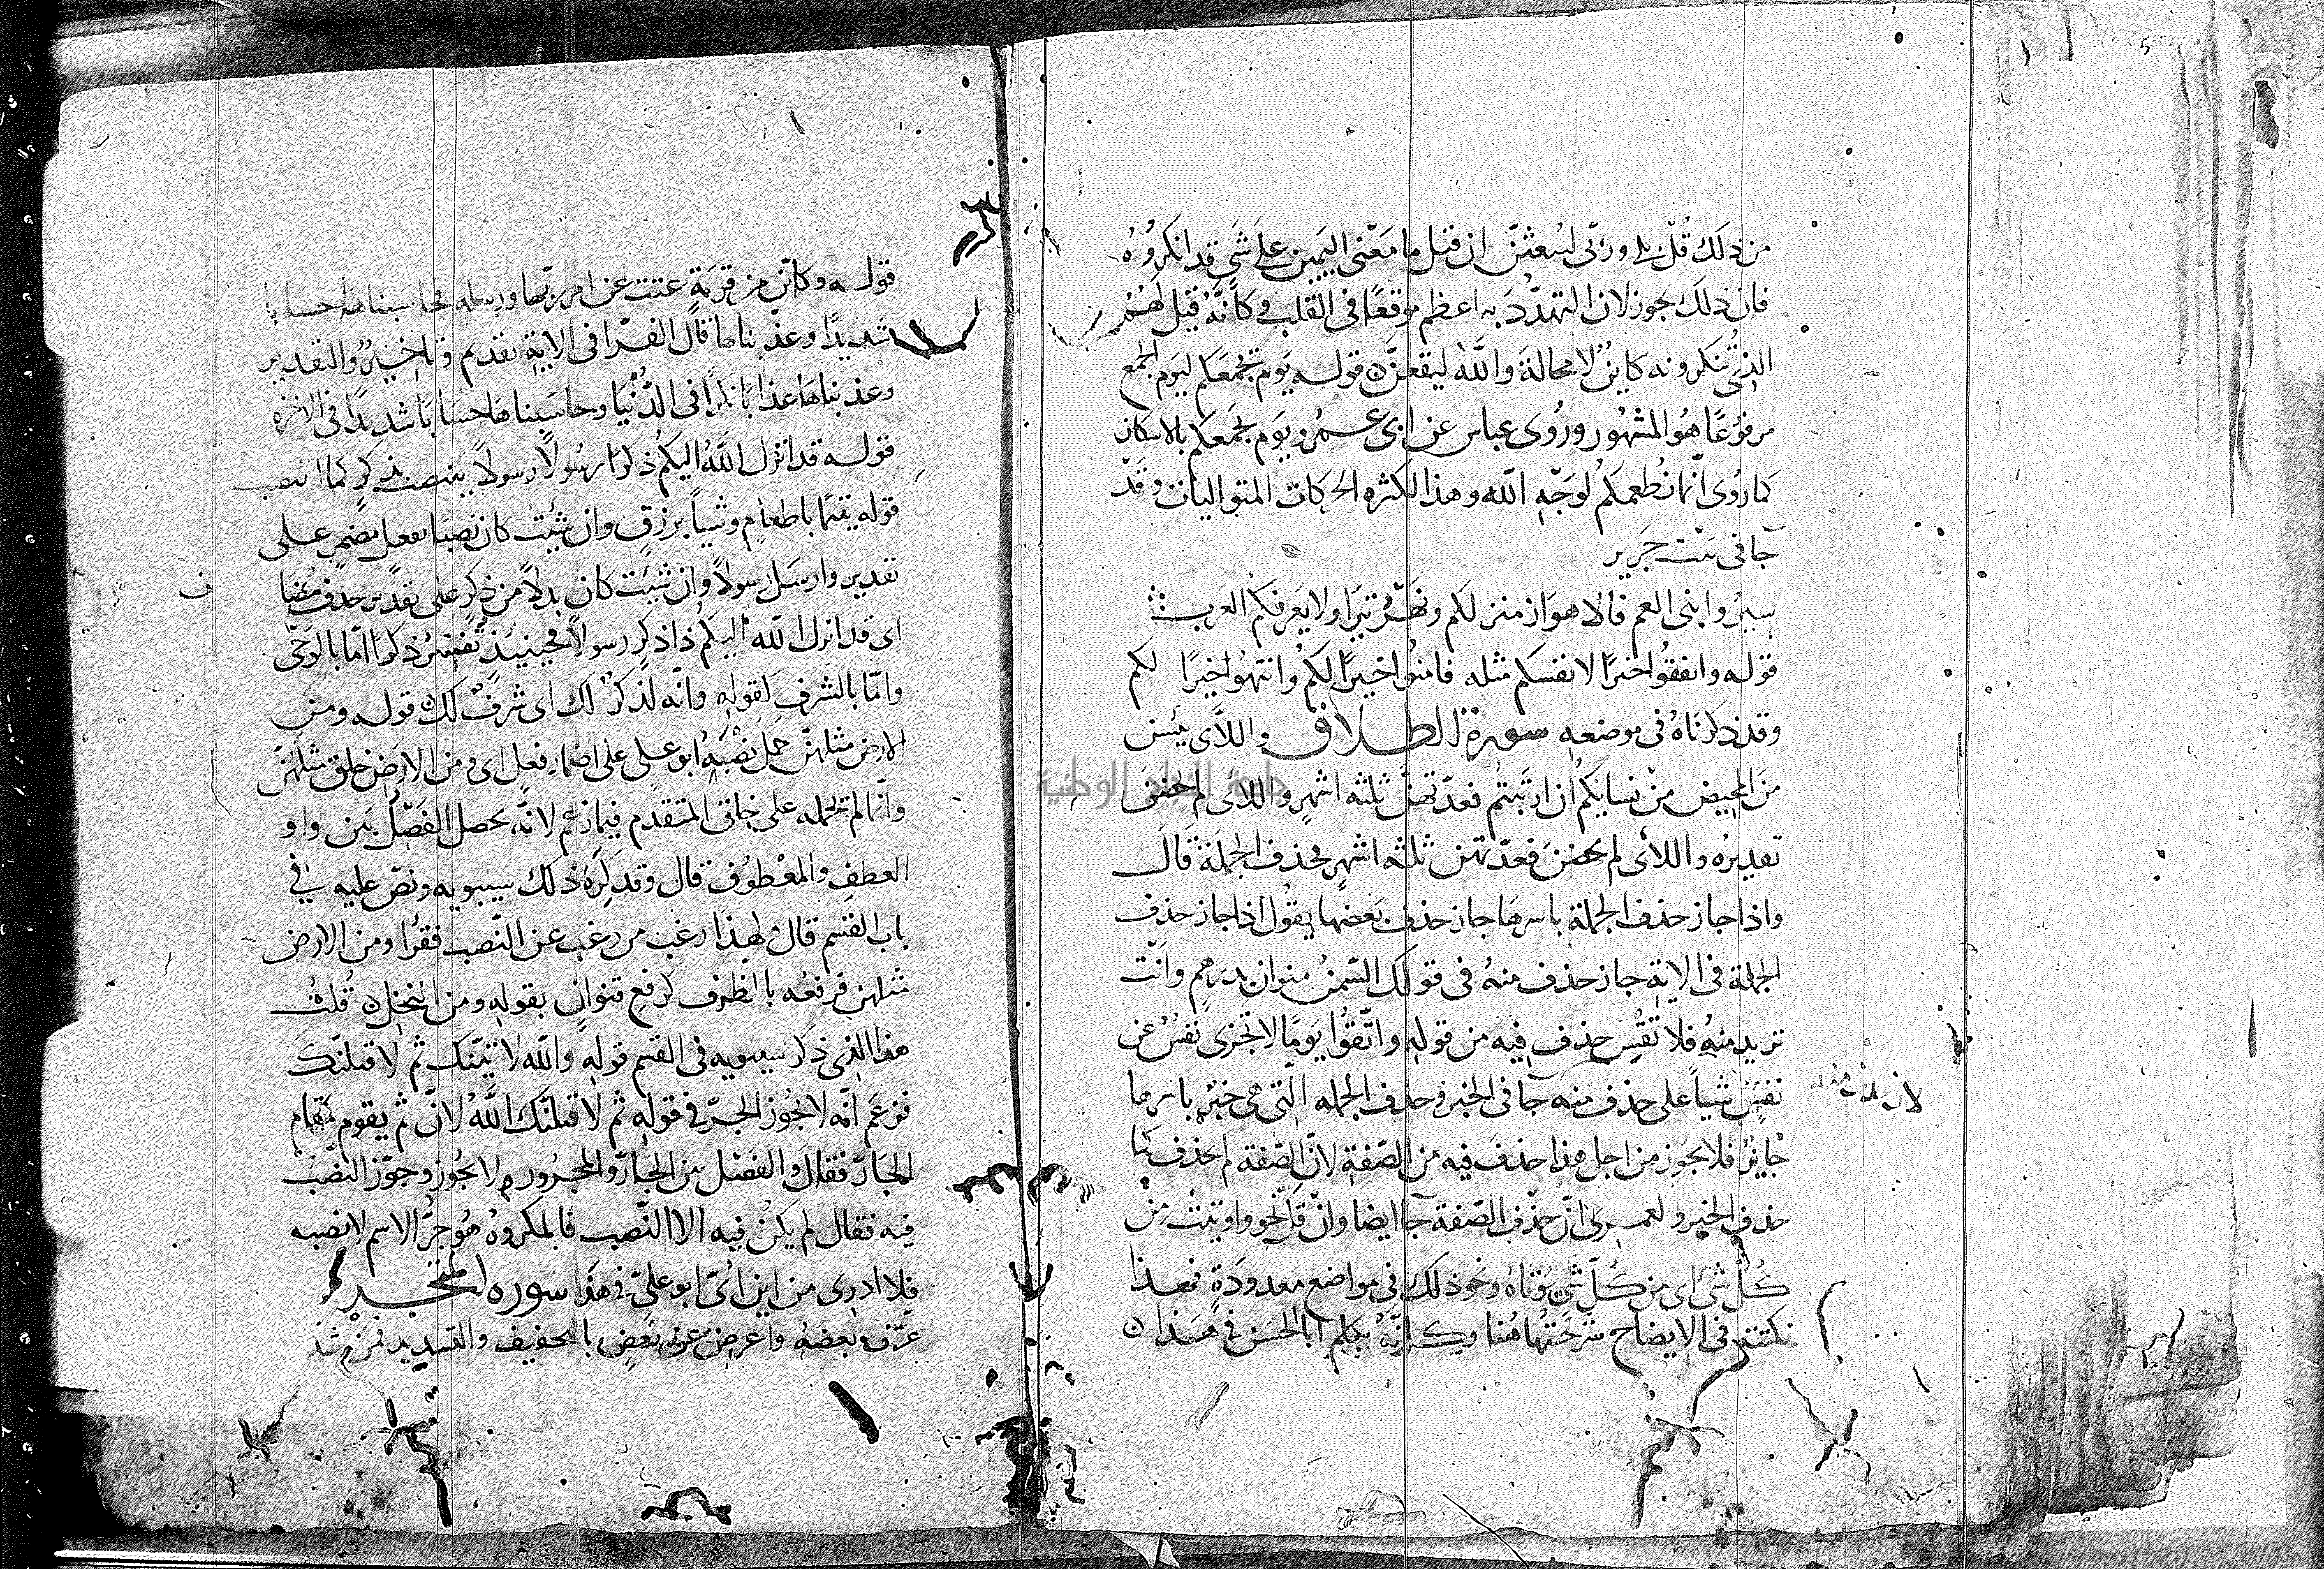 من ذلك قُلْ بلى وربّى لتبعثنّ ان قيل ما مَعْنى اليَمين على شَىٍ قد انكروُهُ
فان ذلك يجوز لان التهدّدَ به اعظم موقعًا فى القلب وكأنّهُ قيل لَهُمْ
الذى تُنكرونه كاينٌ لا محالةَ واللّهِ ليقعنَّ قوله يَوم يجمَعكم ليَوم الجمع
مرفوُعًا هُو المشهُور ورُوى عباس عن ابى عمرٍو يَوم يجمَعكم بالاسكان
كما رُوى انّما نُطعمكم لوَجّهِ اللّه وهذا لكثره الحركات المتواليات وقَدْ
جآ فى بيْت جَرير
سيرُوا بنى العم فالاهوَاز منزلكم ونَهْر تيرَا ولا يَعرفكم العَرَب
قوله وانفقُوا خيرًا لانفسكم مثله فامنُوا خيرًا لكُم وانتهُوا خيرًا لكم
وقد ذكرنَاهُ فى موضعهِ سورة الطلاق واللآى يئسن
مِنَ المحيض مِنْ نسايكم ان ارتَبتم فعدّتهنّ ثلثه اشهرٍ واللآئى لم يحضنَ
تقديرهُ واللآئى لم يحضنَ فعدّتهن ثلثه اشهرٍ فحذف الجملة قالَ
واذا جاز حذف الجملة باسرهَا جاز حذف بَعضها يقُول اذا جاز حذف
الجملة فى الايَةِ جاز حذف منهُ فى قولك السّمنُ منوانِ بدرَهمٍ وانْت
تريد منهُ فلا تَقِسْ حذف فيه من قولهِ واتّقُوا يَومًا لا تَجْزى نفسٌ عن
نفسٍ شيأً على حذف منه جآ فى الخبر وحذف الجمله الّتى هى خبرٌ باسرها
لان حذف منه
جايزٌ فلا يجُوز من اجل هذا حذفَ فيه من الصّفةِ لانّ الصّفة لم يحذف كما
حذف الخبر ولعمرى انّ حذْف الصّفة جآ ايضا وانْ قَلّ نحو واوتيَتْ مِنْ
كُلّ شىٍ اى من كُلّ شىٍ تُؤتاهُ ونحو ذلك فى مواضع معدودَةٍ فهذا
نكتته فى الايضاح شرحْتُها هُنا وكأنّهُ يكلم ابا الحَسَن فى هَذا
قوله وكاىّن من قريَةٍ عتت عن امر ربّها ورسله فحاسَبناها حسابًا
شديدًا وعذّبناها قال الفرّا فى الايَةِ تقديم وتاخيرٌ والتقدير
وعذبناها عذابًا نكرًا فى الدُّنْيا وحاسَبناها حسَابًا شديدًا فى الاخره
قوله قد انزل اللّهُ اليكم ذكرًا رسُولاً رسولاً ينتصب بذكرٍ كما انتصب
قوله يتيمًا باطعامٍ وشيأً برزقٍ وان شيْتَ كان نَصبًا بفعلٍ مضمرٍ على
تقدير وارسَل رسولاً وان شيْتَ كان بدلاً من ذكرٍ على تقديرِ حذفِ مُضَا
ف
اى قد انزل اللّه اليكم ذا ذكرٍ رسولاً فحينيئذٍ تُفسّرُ ذكرًا امّا بالوَحْى
وامّا بالشرفِ لقولهِ وانّه لذكرٌ لك اى شَرفٌ لك قوله ومنَ
الارض مثلهنّ حمل نصْبَهُ ابو على على اضمار فعلٍ اى ومن الارَض خلق مثلَهنّ
وانّما لم يحمله على خلق المتقدم فيما زعم لانّه يحصل الفَصْل بَين واو
العطفِ والمعْطوُف قال وقد كرِهَ ذلك سيبويه ونصّ عليه فى
باب القسم قال ولهذا رغبَ من رغب عن النّصب فقرأ ومن الارض
مثلهن فرفعُه بالظرف كرفع قنوانٍ بقولهِ ومن النخلِ قُلتُ
هذا الذى ذكر سيبويه فى القسم قولهِ واللّه لاتينّك ثم لاقتلنّكَ
فزعَم انّه لا يجُوز الجرّ فى قولهِ ثم لاقتلنّك اللّهُ لانّ ثم يقوم مقام
الجَارّ فقالَ والفَصْل بين الجَارّ والمجرُور لا يجُوز وجوّز النّصْبُ
فيه فقال لم يكنْ فيه الا النّصب فالمكروهُ هُو جرُّ الاسم لا نصبه
فلا ادرى من اين اُتىَ ابو علىّ فى هَذا سوره التحريم
عرّف بعضهُ واعرضَ عن بعْضٍ بالتخفيف والتشديد فمنْ شدد